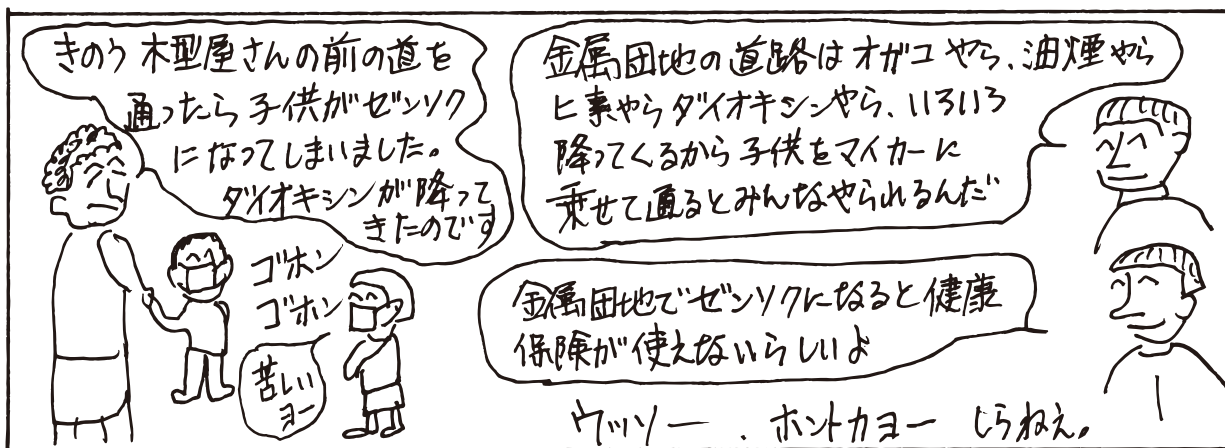 きのう 木型屋さんの前の道を
通ったら子供がゼンソク
になってしまいました。
ダイオキシンが降って
きたのです
ゴホン
ゴホン
苦しい
ヨー
金属団地の道路はオガコやら、油煙やら
ヒ素やらダイオキシンやら、いろいろ
降ってくるから子供をマイカーに
乗せて通るとみんなやられるんだ
金属団地でゼンソクになると健康
保険が使えないらしいよ
ウッソー、ホントカヨー しらねえ。